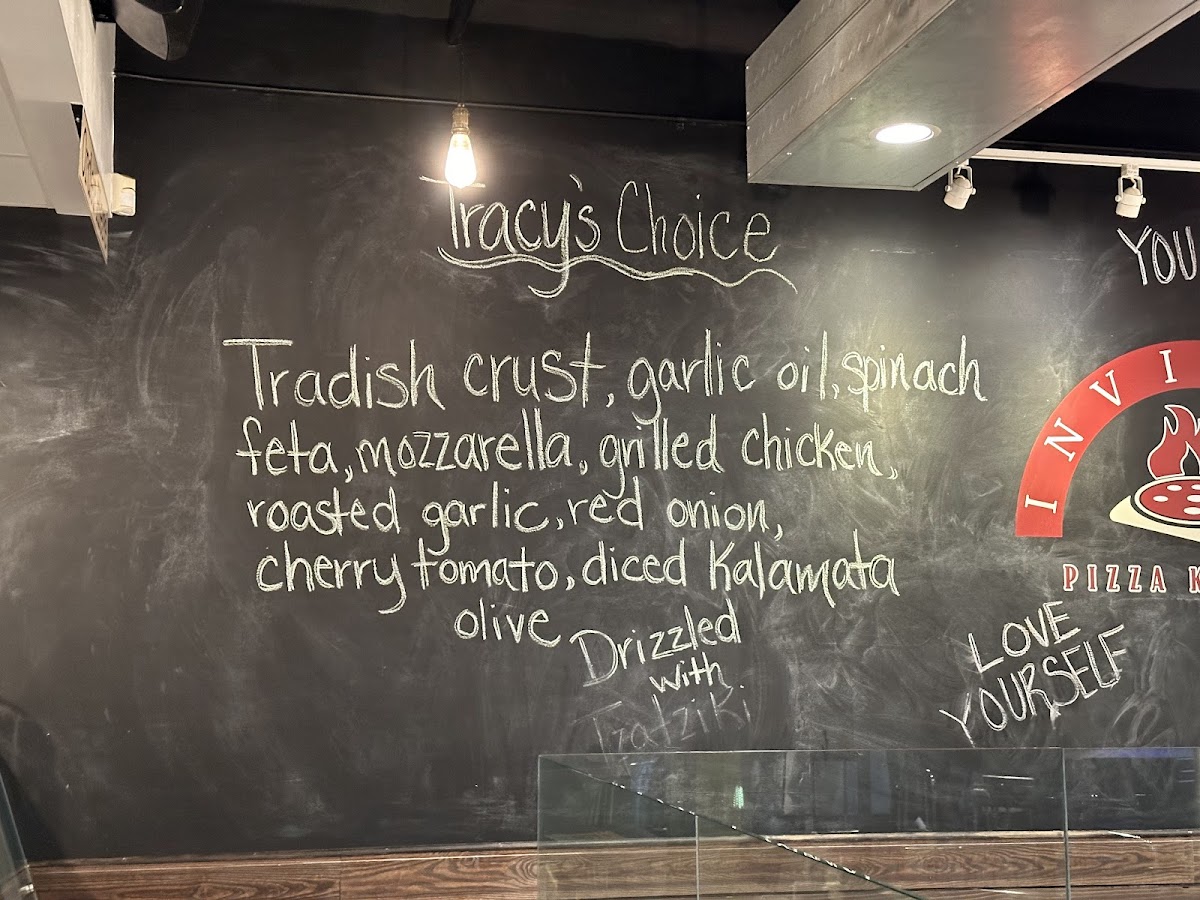 Tracy's Choice
Tradish crust, garlic oil, spinach
feta, mozzarella, grilled chicken,
roasted garlic, red onion,
cherry tomato, diced Kalamata
olive
Drizzled
with
Tzatziki
YOU
INVI
PIZZA K
LOVE
YOURSELF